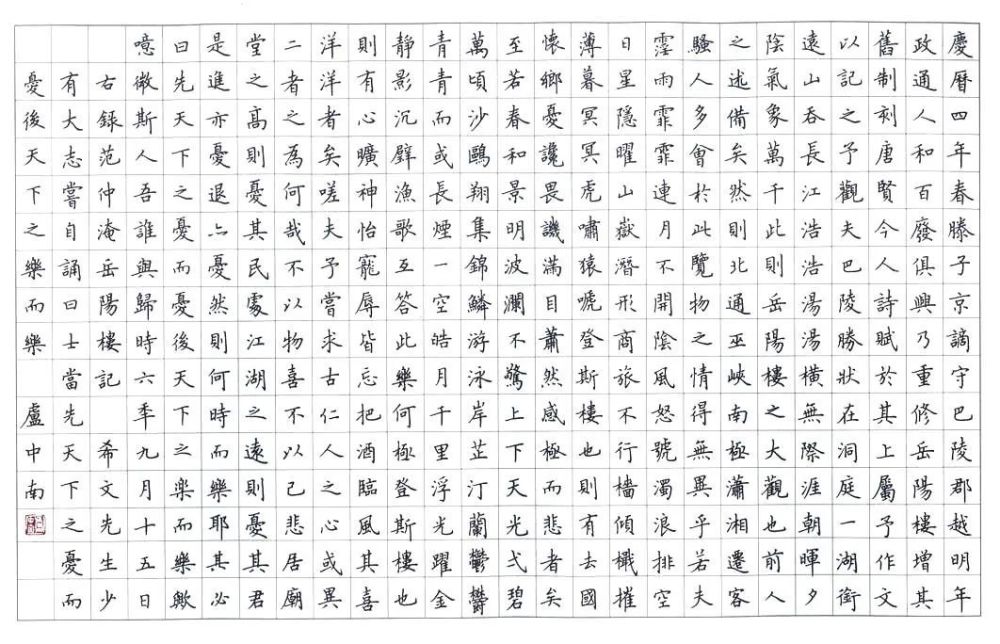 慶曆四年春滕子京謫守巴陵郡越明年
政通人和百廢俱興乃重修岳陽樓增其
舊制刻唐賢今人詩賦於其上屬予作文
以記之予觀夫巴陵勝狀在洞庭一湖銜
遠山吞長江浩浩湯湯橫無際涯朝暉夕
陰氣象萬千此則岳陽樓之大觀也前人
之述備矣然則北通巫峽南極瀟湘遷客
騷人多會於此覽物之情得無異乎若夫
霪雨霏霏連月不開陰風怒號濁浪排空
日星隱曜山嶽潛形商旅不行檣傾檝摧
薄暮冥冥虎嘯猿嗁登斯樓也則有去國
懷鄉憂讒畏譏滿目蕭然感極而悲者矣
至若春和景明波瀾不驚上下天光弌碧
萬頃沙鷗翔集錦鱗游泳岸芷汀蘭鬱鬱
青青而或長煙一空皓月千里浮光躍金
靜影沉璧漁歌互答此樂何極登斯樓也
則有心曠神怡寵辱皆忘把酒臨風其喜
洋洋者矣嗟夫予嘗求古仁人之心或異
二者之為何哉不以物喜不以己悲居廟
堂之高則憂其民處江湖之遠則憂其君
是進亦憂退亦憂然則何時而樂耶其必
曰先天下之憂而憂後天下之楽而樂歟
噫微斯人吾誰與歸時六年九月十五日
右錄范仲淹岳陽樓記 希文先生少
有大志嘗自誦曰士當先天下之憂而
憂後天下之樂而樂 盧中南